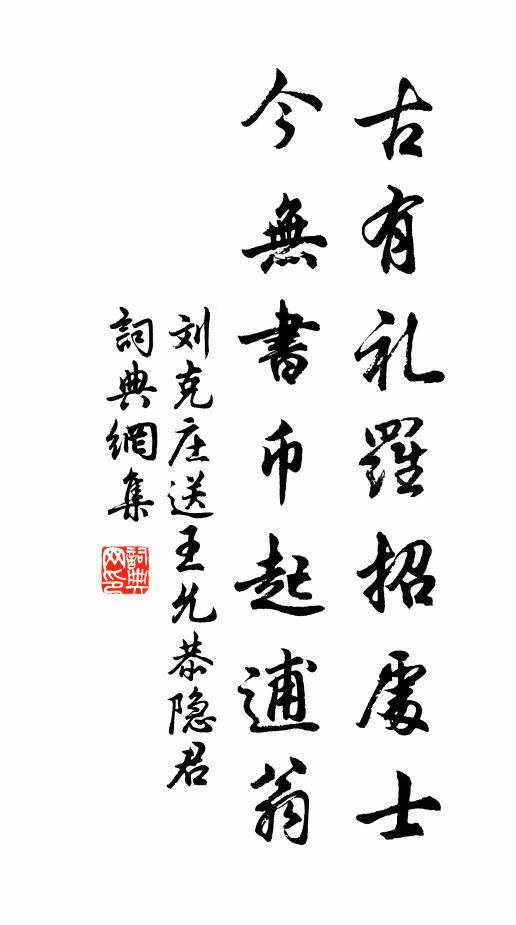 古有礼羅招處士
今無書币起逋翁
刘克庄送王允恭隐君
詞典網集
詞典网印